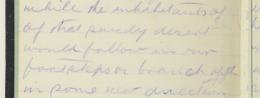 while the inhabitants of
of that sandy desert
would follow in our
footsteps or branch off
in some new direction